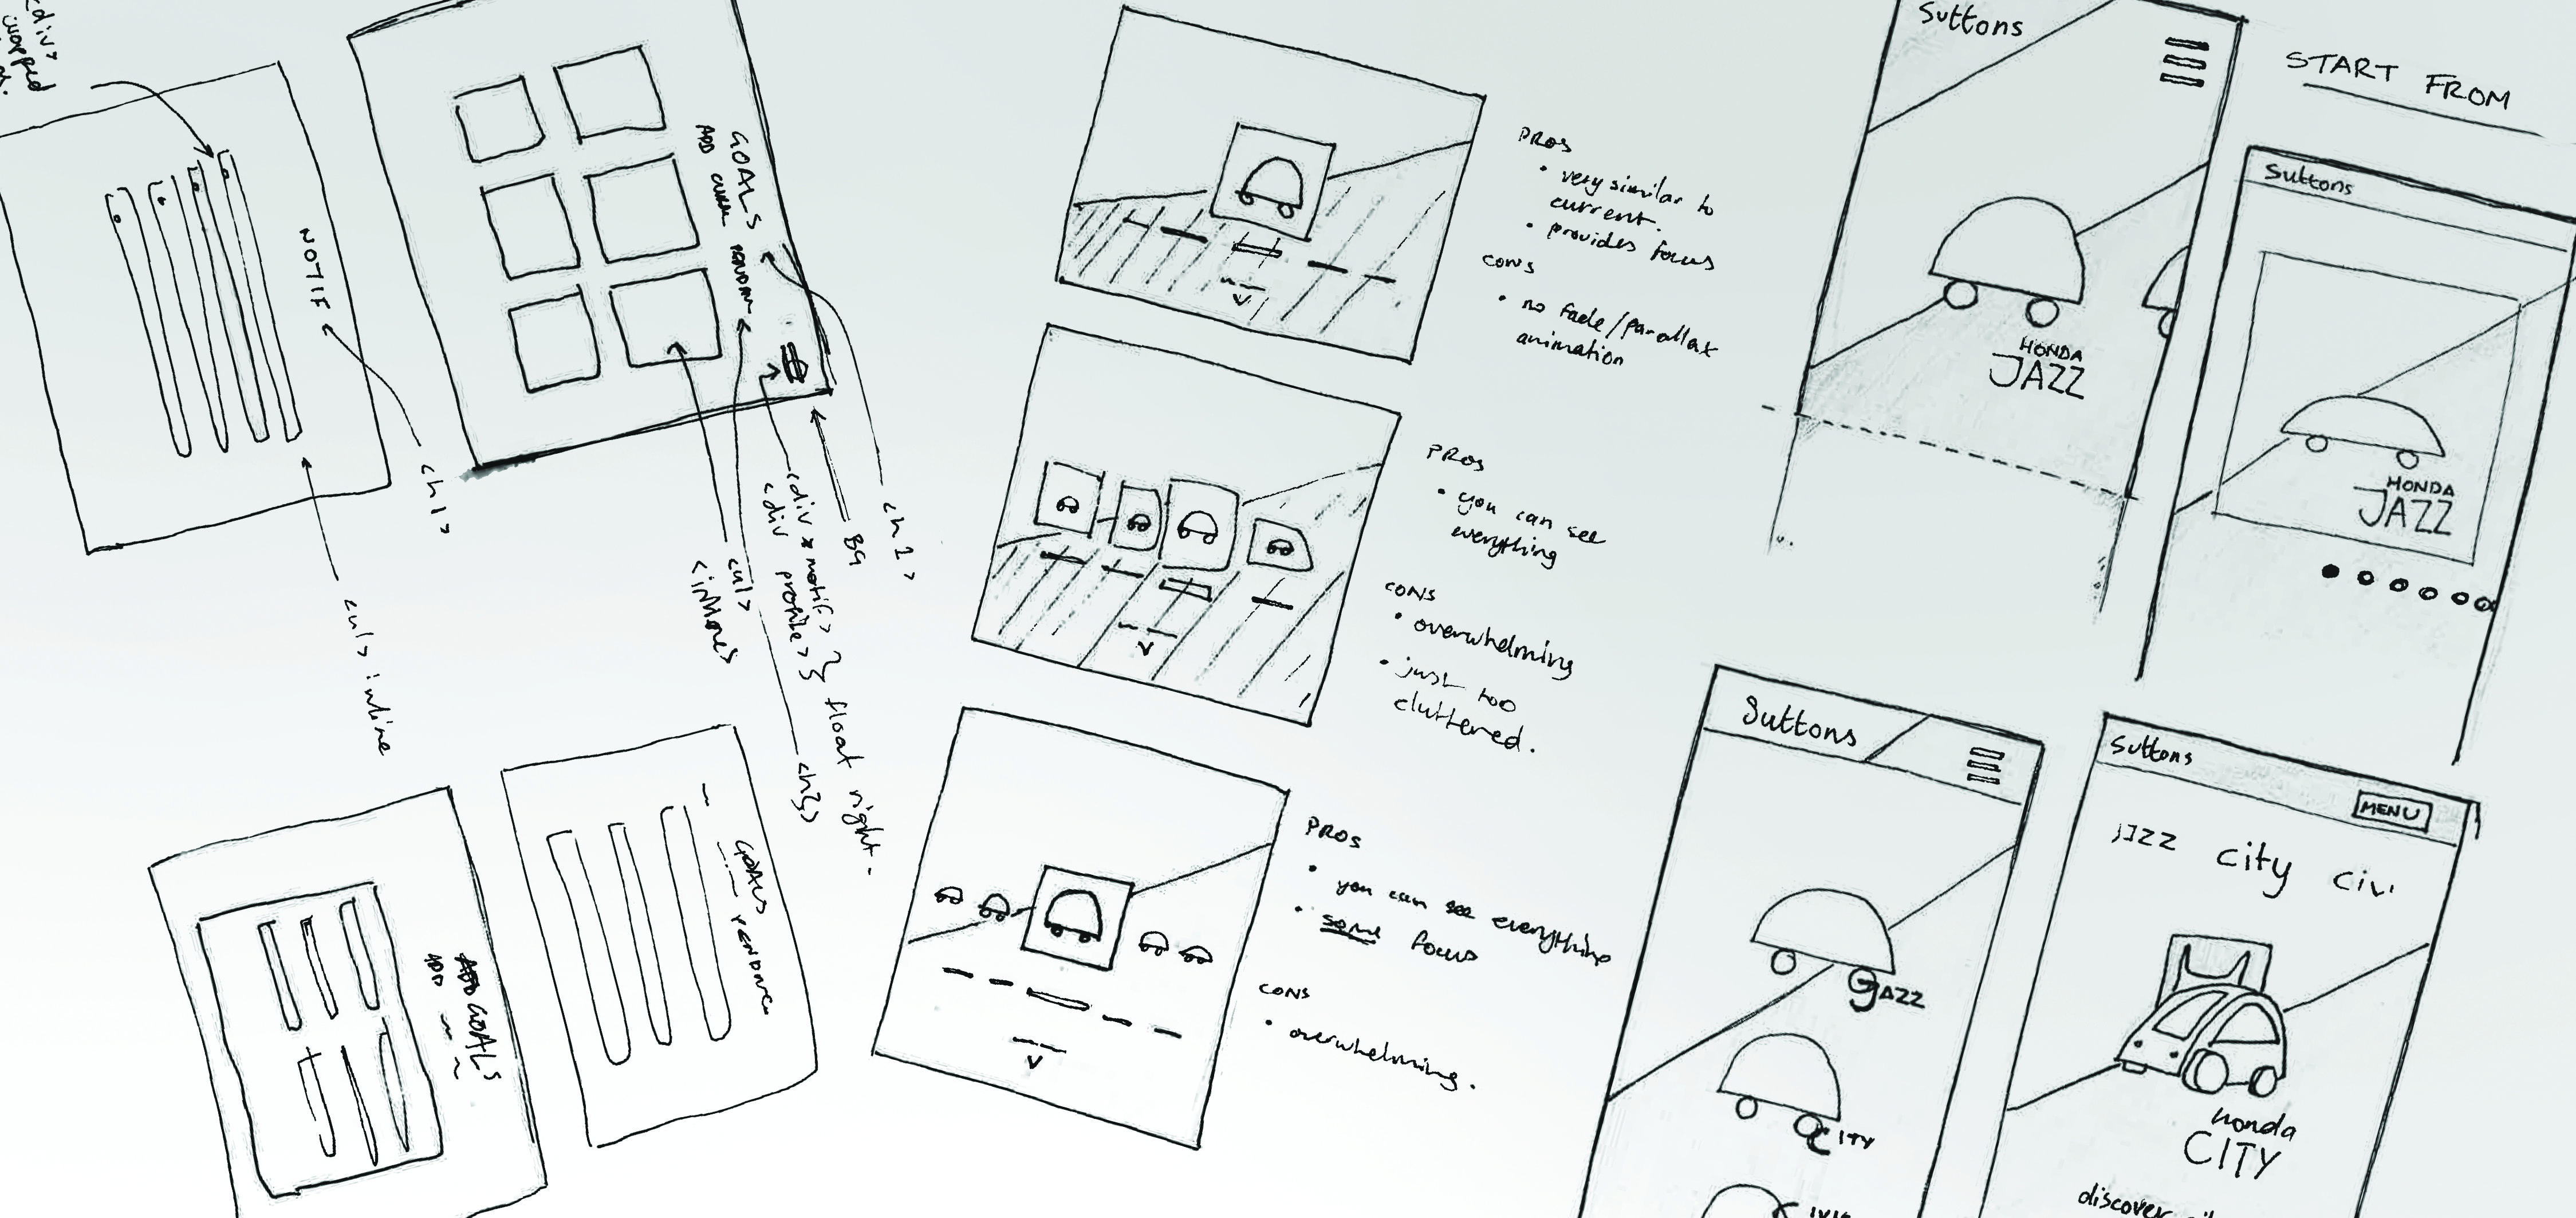 <div>
wrapped
NOTIF
<h1>
<ul> inline
GOALS
ADD
<h1>
BG
<div *notif>
<div profile> } float right.
<ul>
<h3>
GOALS
ADD GOALS
ADD
PROS
• very similar to
current.
• provides focus
CONS
• no fade/parallax
animation
PROS
• you can see
everything
CONS
• overwhelming
• just too
cluttered.
PROS
• you can see everything
• some focus
CONS
• overwhelming.
Suttons
HONDA
JAZZ
START FROM
Suttons
HONDA
JAZZ
Suttons
JAZZ
CITY
Suttons
MENU
JAZZ city civi
Honda
CITY
discover